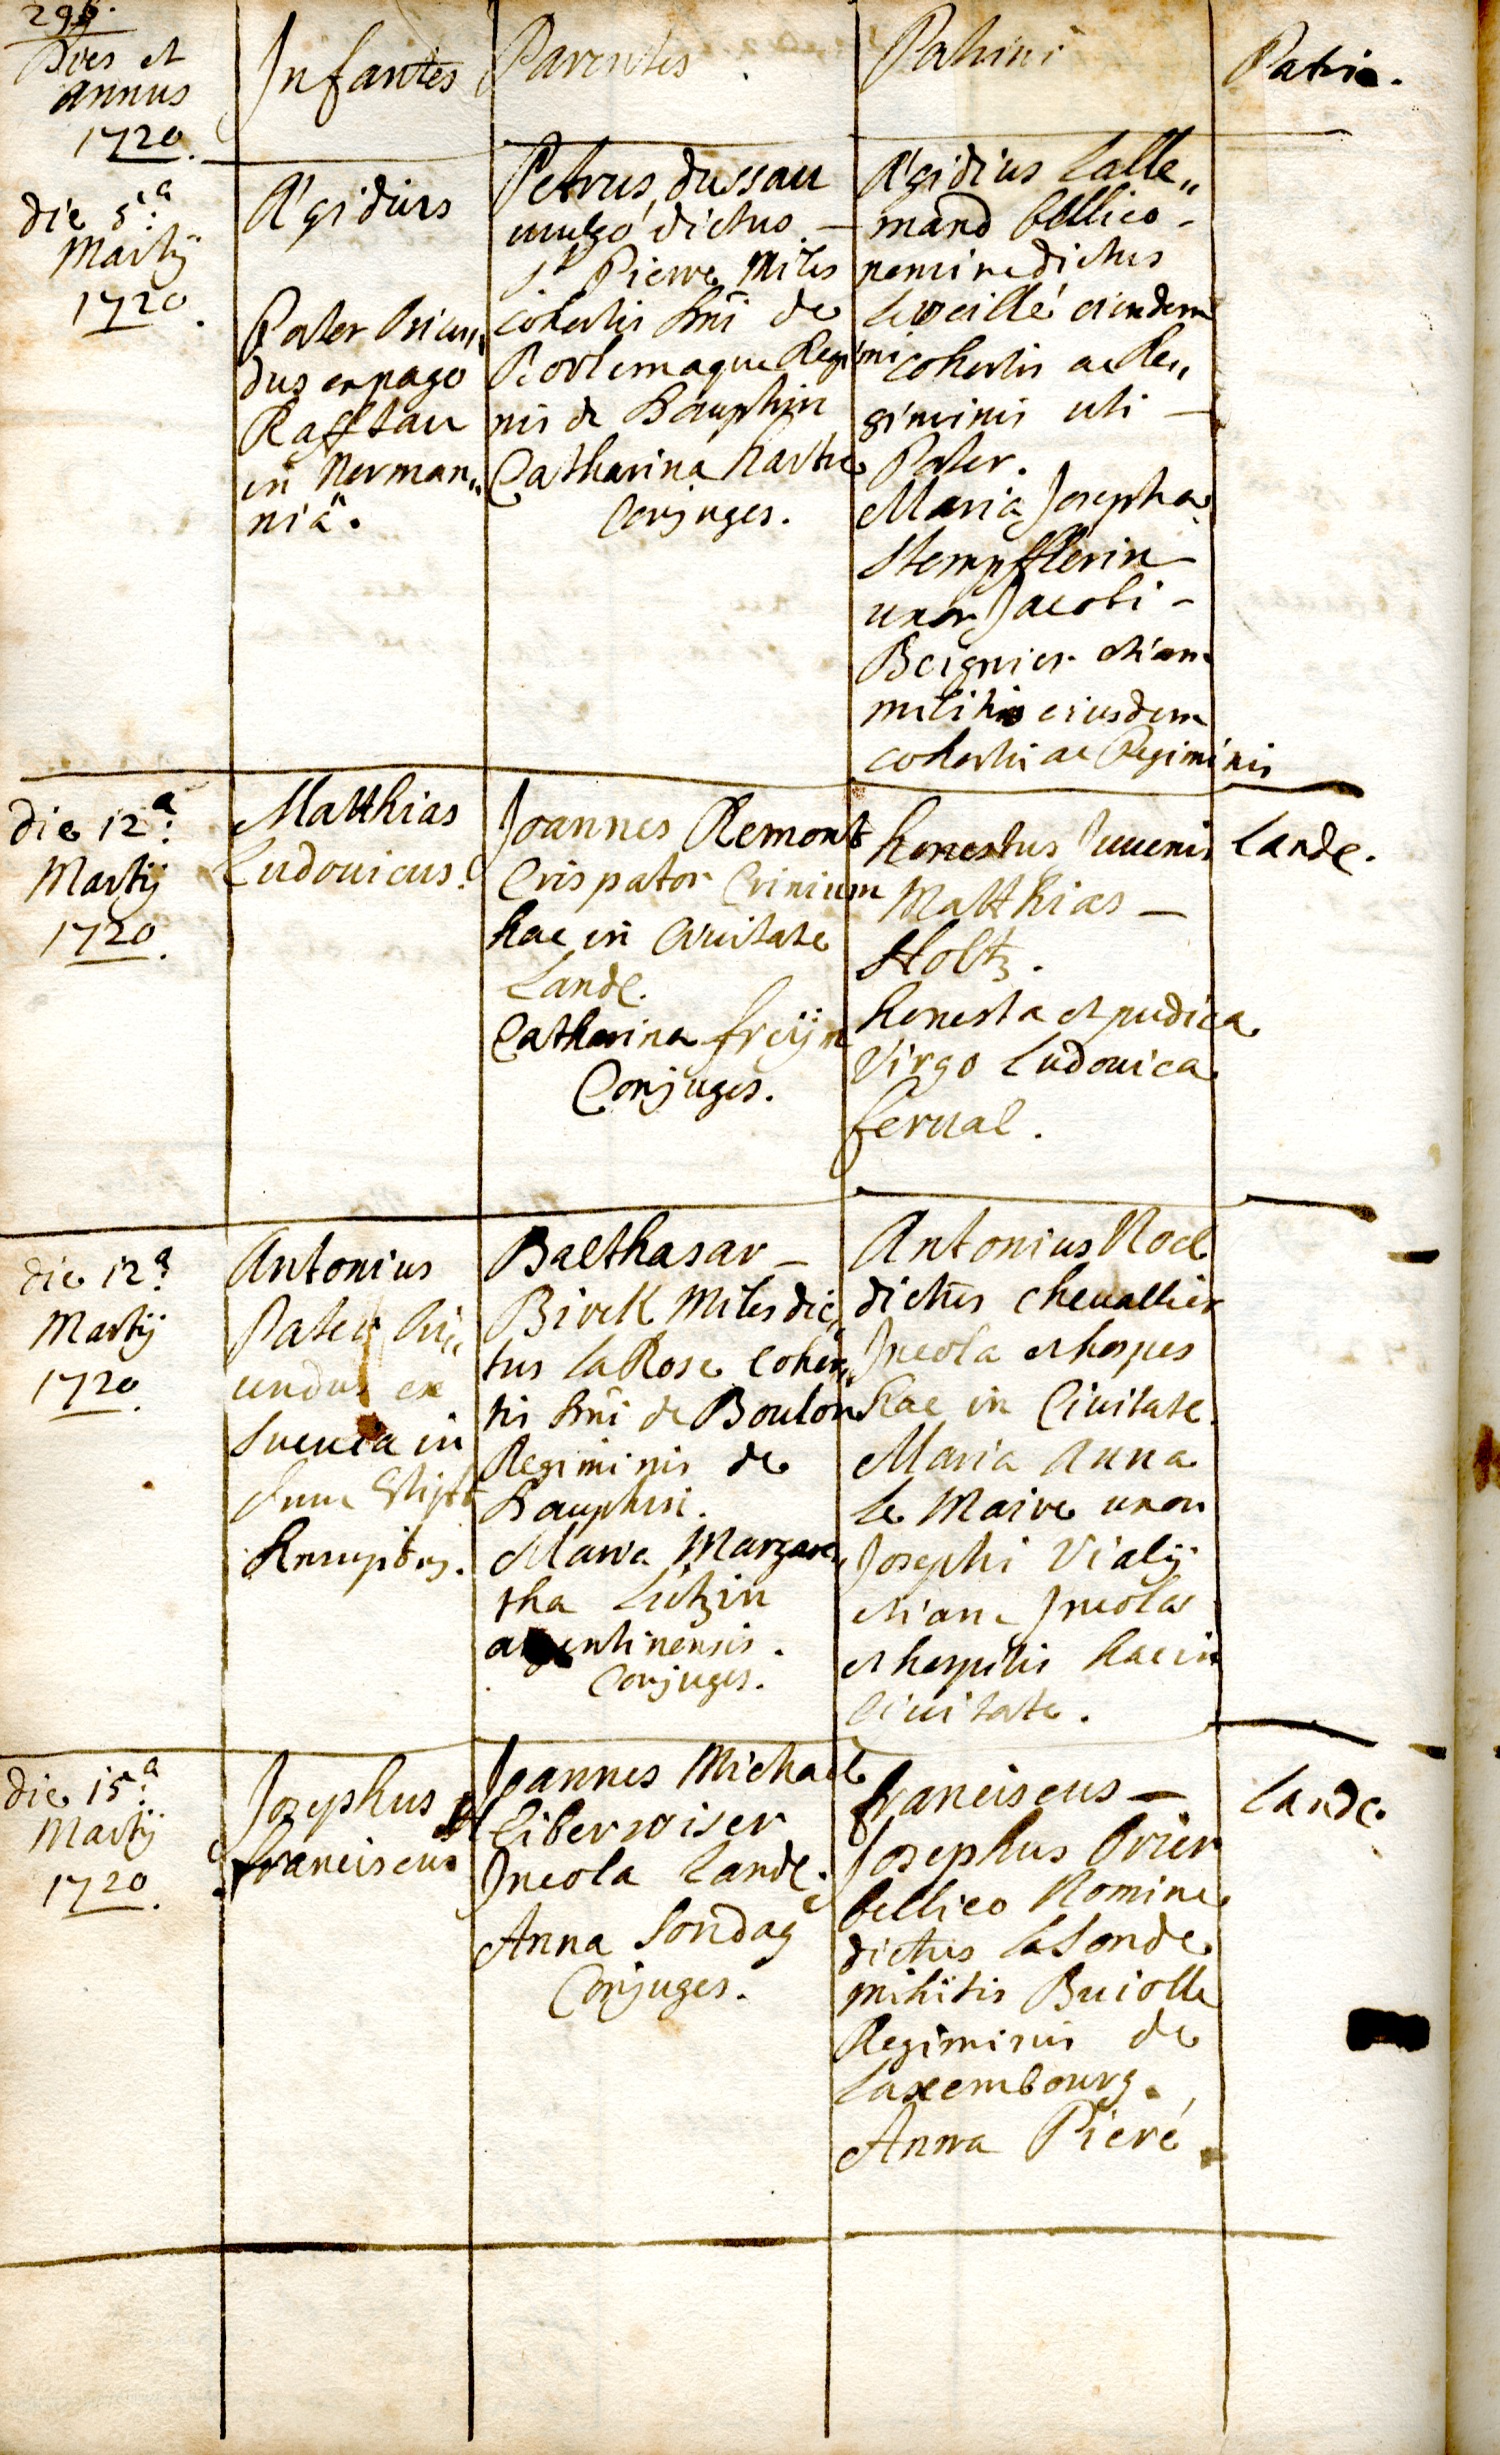 Dies et
annus
1720.
Infantes
Parentes.
Patrini
Patria.
die 5.a
Martij
1720.
Ægidius
Pater Oriun„
dus ex pago
Rafftau
in Norman„
niâ.
Petrus dussau
uulgó dictus —
St Pierre Miles
Cohortis Dni de
Portemaque Regimi
nis de Dauphin
Catharina hartie
Conjuges.
Ægidius Lalle„
mand bellico -
nomine dictus
Leveillé eiusdem
cohortis ac Re„
giminis uti —
Pater.
Maria Josepha
Stempfflerin
uxor Jacobi -
Beignier etiam
militis eiusdem
cohortis ac Regiminis
die 12.a
Martij
1720.
Matthias
Ludouicus.
Joannes Remont
Crispator Crinium
hac in Ciuitate
Landl.
Catharina freÿin
Conjuges.
honestus Iuuenis
Matthias —
Holtz.
honesta et pudica
Virgo Ludouica
fernal.
Lande.
die 12.a
Martij
1720.
Antonius
Pater Ori„
undus ex
Sueuia in
Balthasar —
Birck Miles dic„
tus LaRose Cohor„
tis Dni de Boulon
Regiminis de
Dauphin.
Maria Margare„
tha Lutzin
argentinensis.
Conjuges.
Antonius Noel
dictus cheuallier
Incola et hospes
hac in Ciuitate.
Maria Anna
Le Maire uxor
Josephi Vialÿ
etiam Incolae
et hospitis hac in
Ciuitate.
die 15.a
Martij
1720.
Josephus
franciscus
Joannes Michael
Liberwiser
Incola Landl.
Anna Sondag
Conjuges.
franciscus —
Josephus Orier
bellico Nomine
dictus LaSonde
militis Buiolle
Regiminis de
Laxembourg.
Anna Pieré.
Lande